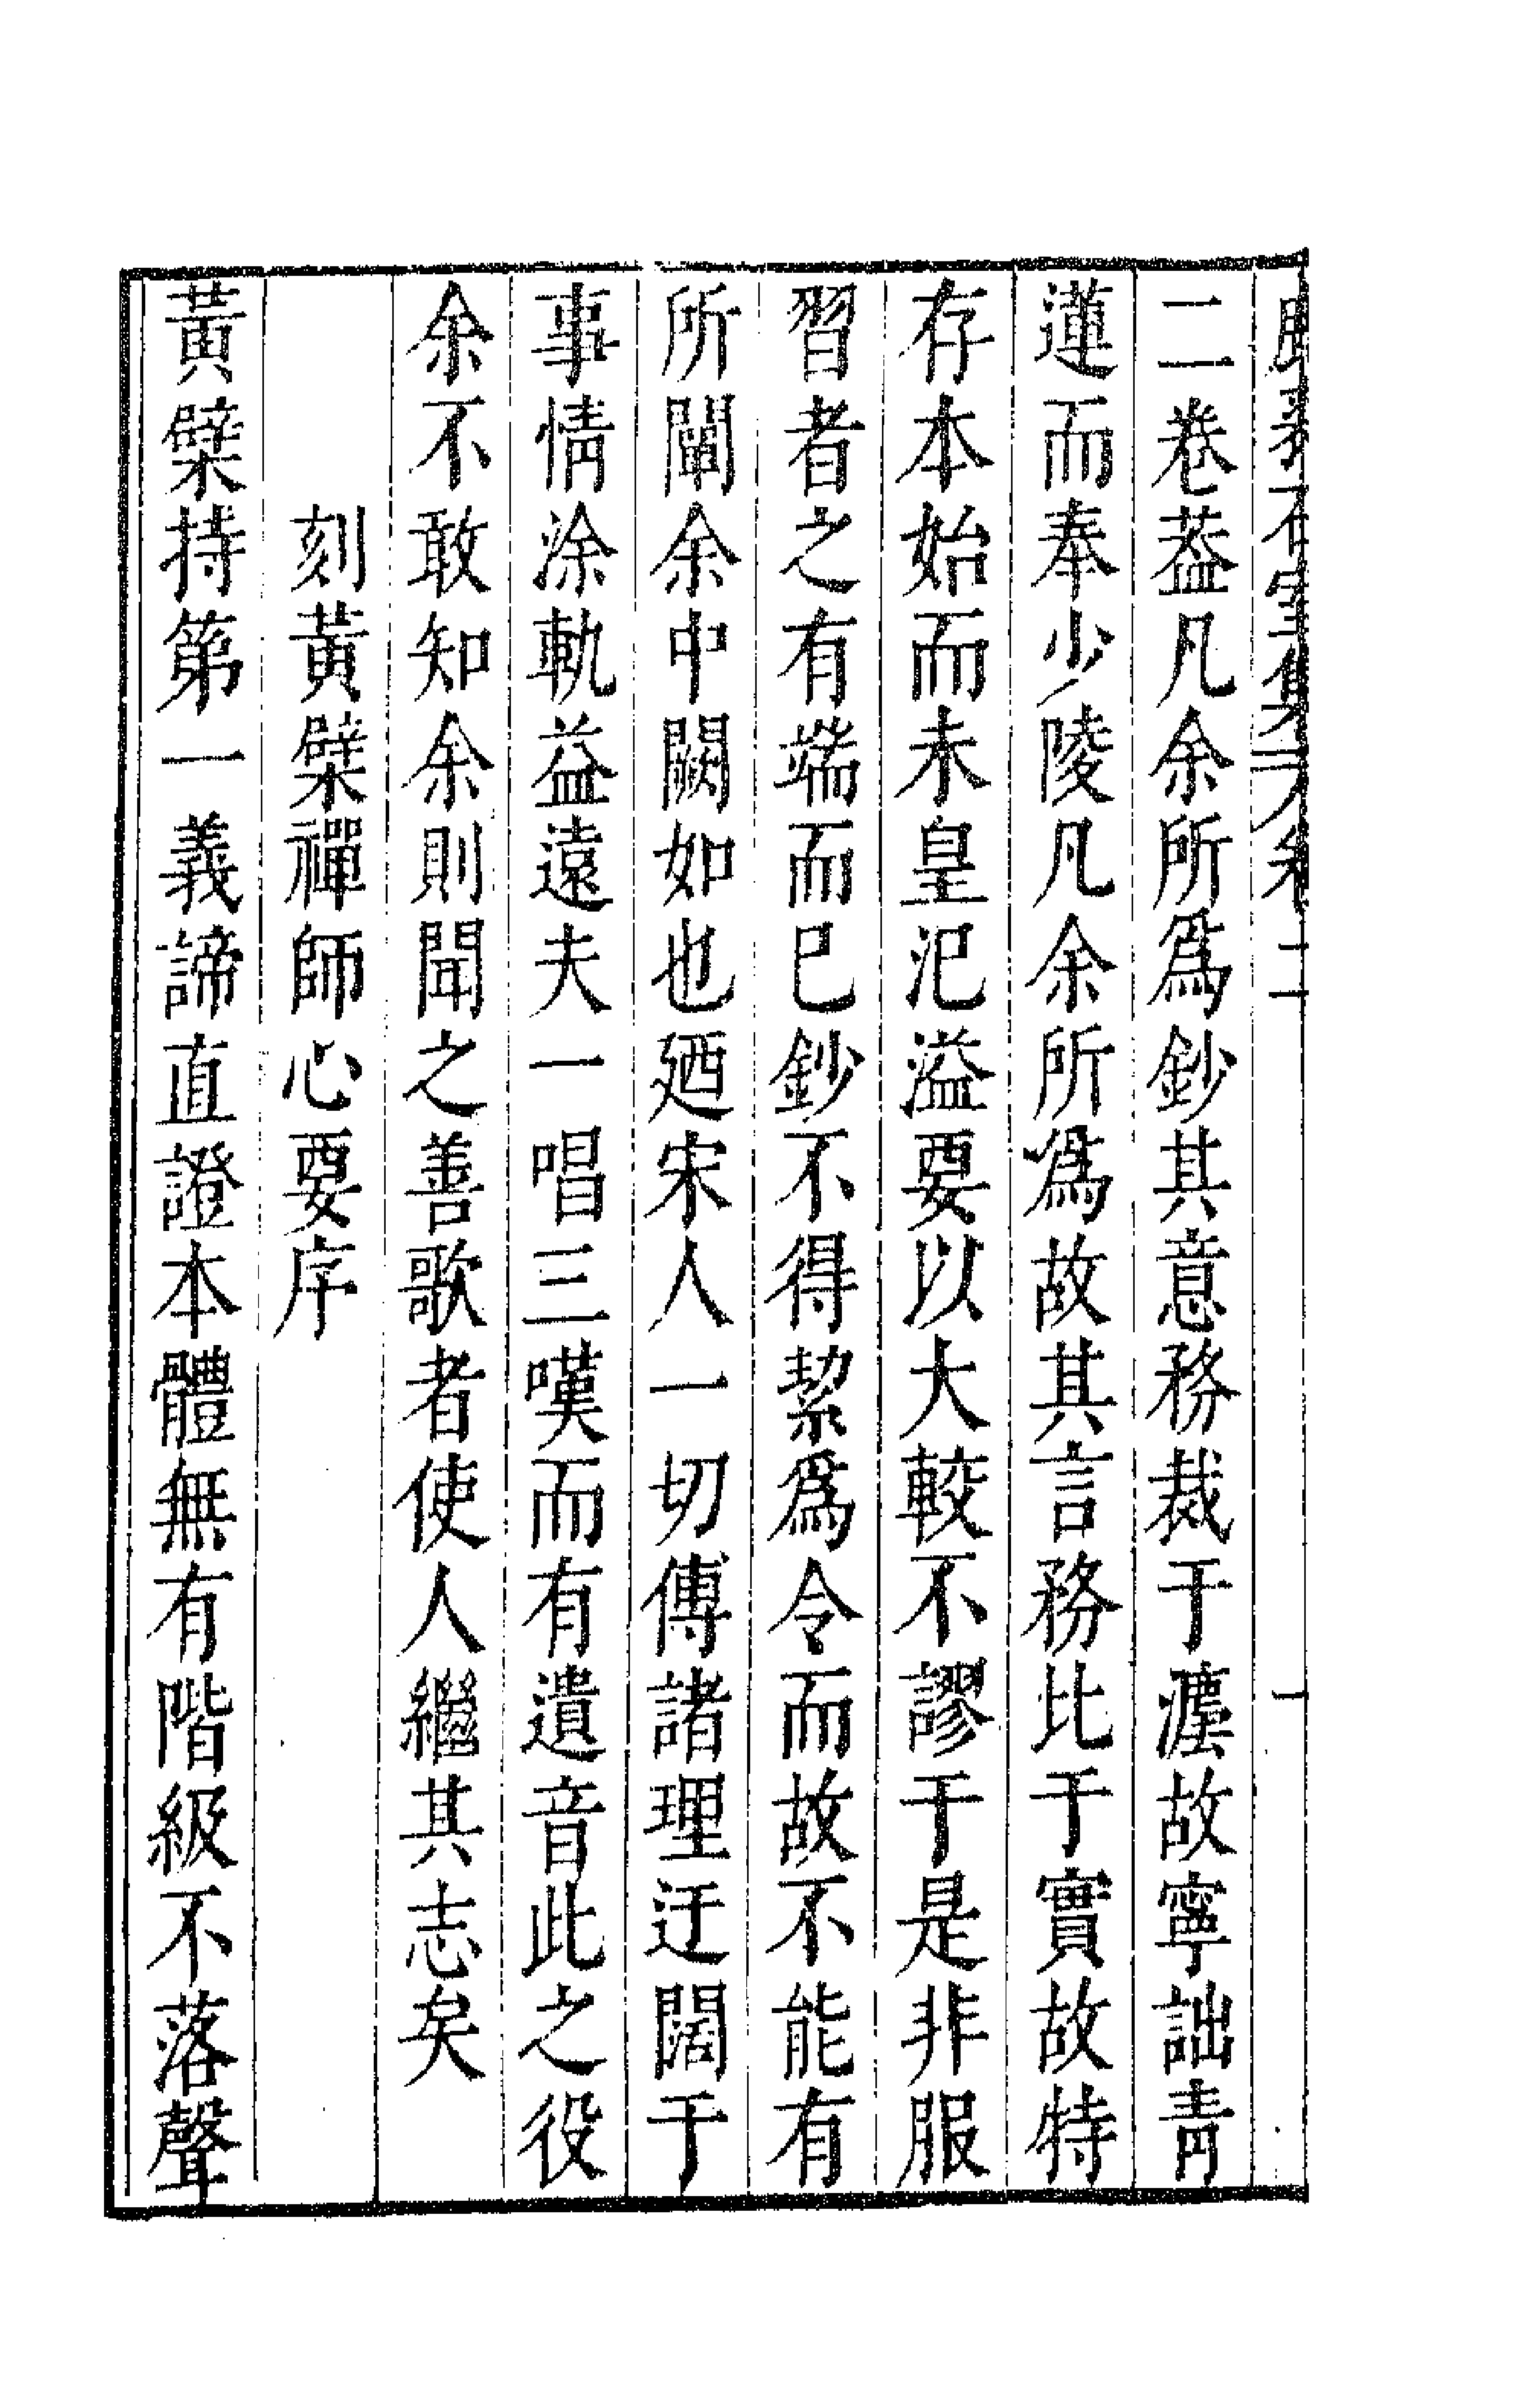 二卷葢凡余所爲鈔其意務裁于瀍故寧詘青
蓮而奉少陵凡余所爲故其言務比于實故特
存本始而未皇汜溢要以大較不謬于是非服
習者之有端而已鈔不得挈爲令而故不能有
所闡余中闕如也廼宋人一切傅諸理迂闊于
事情涂軌益遠夫一唱三嘆而有遺音此之役
余不敢知余則聞之善歌者使人繼其志矣
刻黃檗禪師心要序
黃檗持第一義諦直證本體無有階級不落聲